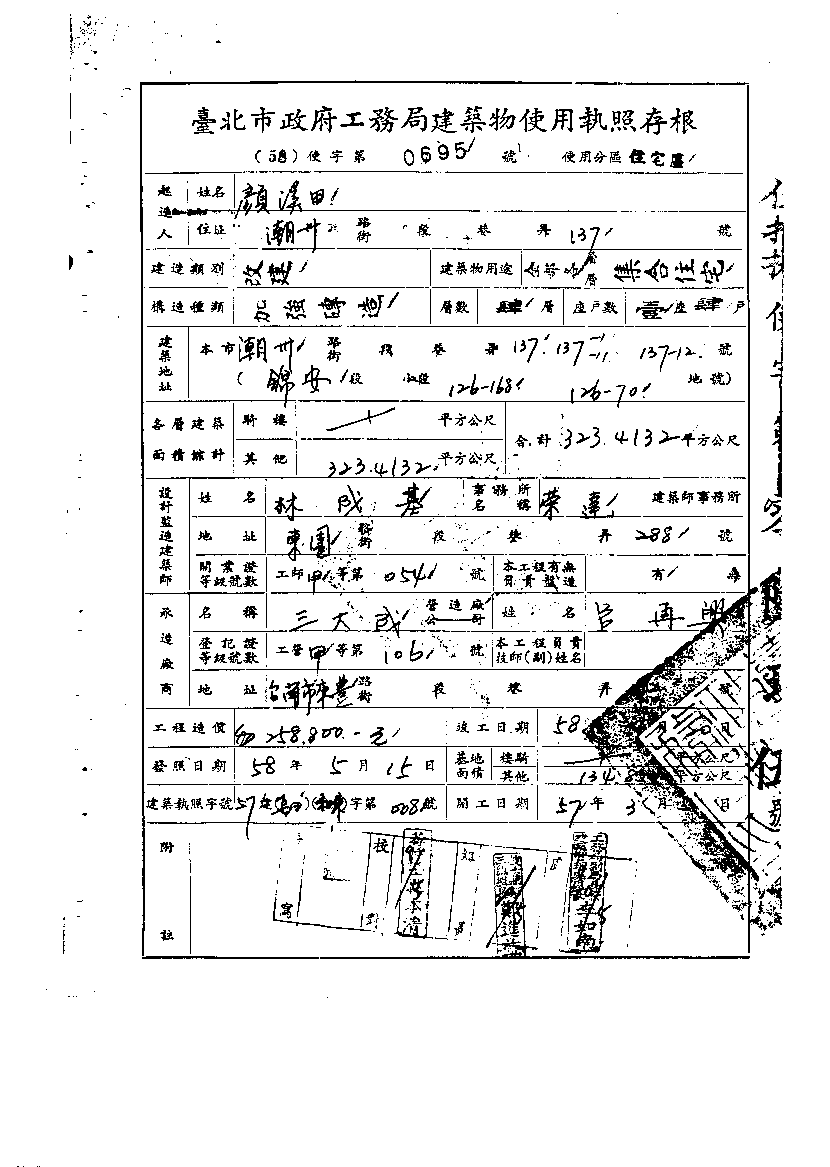 臺北市政府工務局建築物使用執照存根
(58)使字第 0695 號 使用分區 住宅區
起造人 姓名 顏溪田
住址 潮州 路街 段 巷 弄 137 號
建造類別 改建 建築物用途 層 集合住宅
構造種類 加強磚造 層數 肆 層 座戶數 壹 座 肆 戶
建築地址 本市 潮州 路街 段 巷 弄 137 137-11 137-12 號
(錦安 段 小段 126-168 126-70 地號)
各層建築面積總計 騎樓 平方公尺 合計 323.4132 平方公尺
其他 323.4132 平方公尺
設計監造建築師 姓名 林成基 事務所名稱 榮達 建築師事務所
地址 東園 路街 段 巷 弄 288 號
開業證等級號數 工師 甲 等第 054 號 本工程有無負責監造 有 無
承造廠商 名稱 三大成 營造廠公司 姓名 呂再興
登記證等級號數 工營 甲 等第 106 號 本工程負責技師(副)姓名
地址 路街 段 巷 弄 號
工程造價 258,800.-元 竣工日期 58
發照日期 58 年 5 月 15 日 基地面積 騎樓 平方公尺
其他 134. 平方公尺
建築執照字號 57 字第 008 號 開工日期 57 年 3 月 日
附註